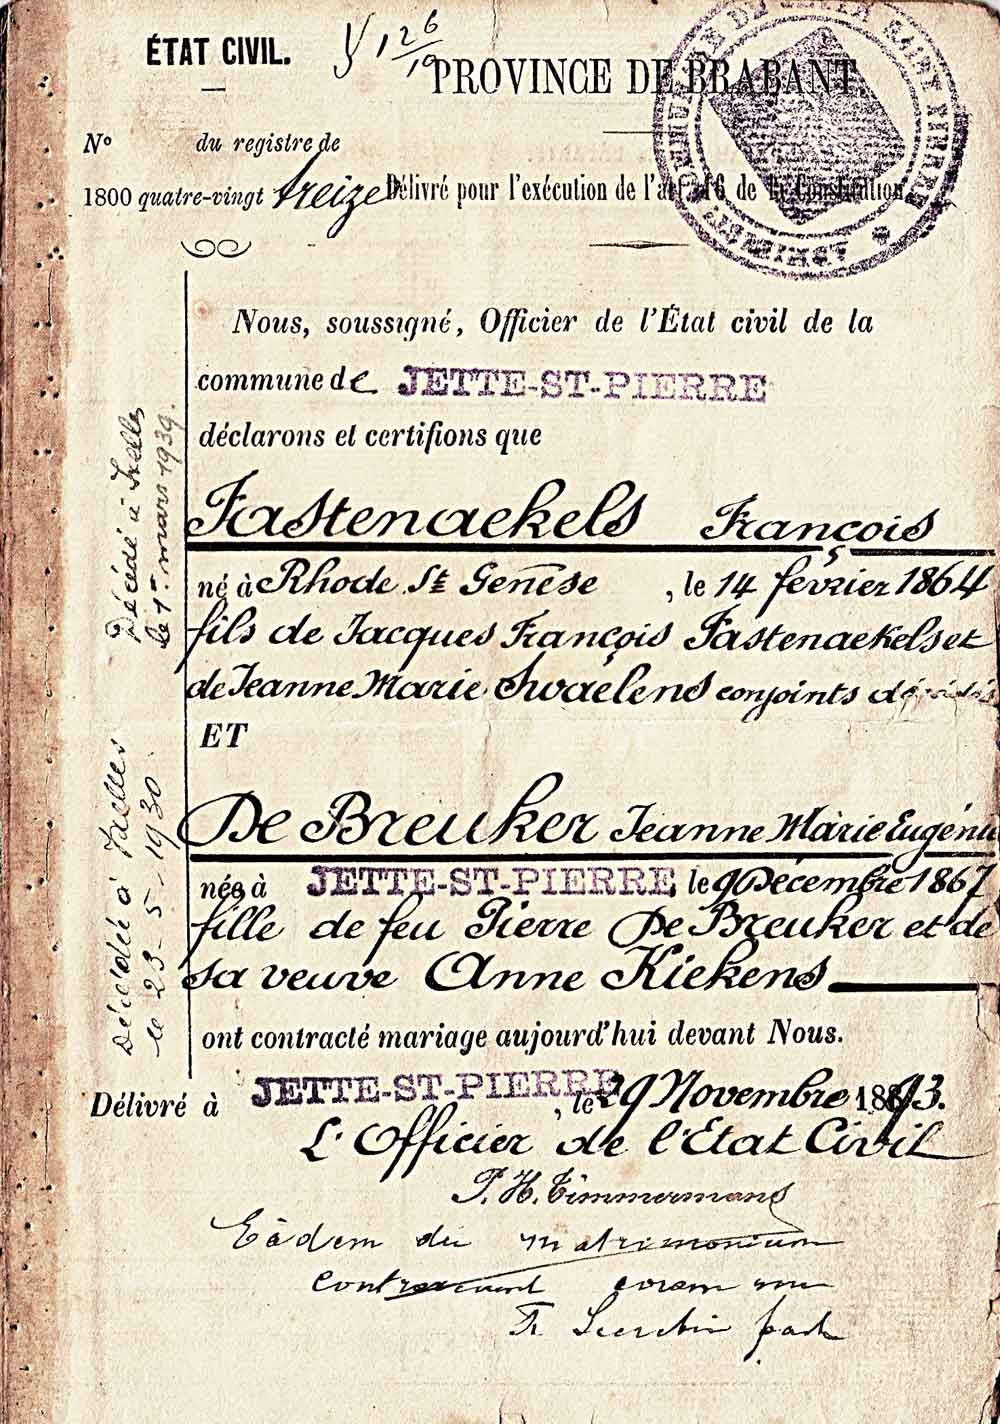 ÉTAT CIVIL.
PROVINCE DE BRABANT.
Nº du registre de
1800 quatre-vingt treize
Délivré pour l'exécution de l'art. 16 de la Constitution
Nous, soussigné, Officier de l'État civil de la
commune de JETTE-ST-PIERRE
déclarons et certifions que
Fastenaekels François
né à Rhode Ste Genèse, le 14 février 1864
fils de Jacques François Fastenaekels et
de Jeanne Marie Swaelens conjoints décédés
ET
De Breuker Jeanne Marie Eugénie
née à JETTE-ST-PIERRE, le 9 Décembre 1867
fille de feu Pierre De Breuker et de
sa veuve Anne Kiekens
ont contracté mariage aujourd'hui devant Nous.
Délivré à JETTE-ST-PIERRE, le 29 Novembre 1893.
L'Officier de l'Etat Civil
P. H. Timmermans
Eâdem die matrimonium
contraxerunt coram me
Décédé à Ixelles
le 1er mars 1939.
Décédée à Ixelles
le 23-5-1930